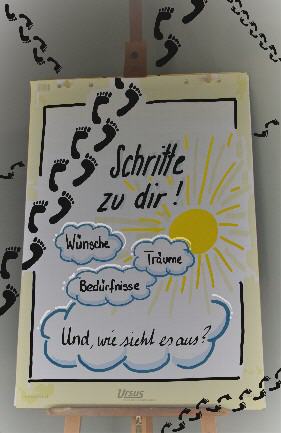 Schritte
zu dir!
Wünsche
Träume
Bedürfnisse
Und, wie sieht es aus?
Ursus